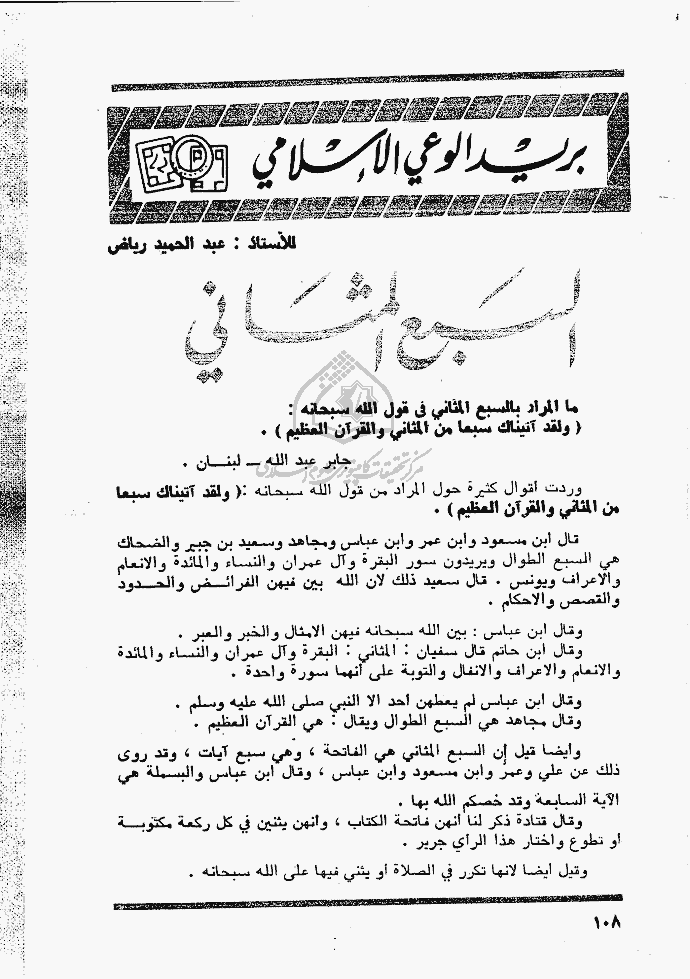 بريد الوعي الإسلامي
للأستاذ : عبد الحميد رياض
السبع المثاني
ما المراد بالسبع المثاني في قول الله سبحانه :
( ولقد آتيناك سبعا من المثاني والقرآن العظيم ) .
جابر عبد الله – لبنــان .
مركز تحقیقات کامپیوتری علوم اسلامی
وردت أقوال كثيرة حول المراد من قول الله سبحانه :( ولقد آتيناك سبعا
من المثاني والقرآن العظيم ) .
قال ابن مسعود وابن عمر وابن عباس ومجاهد وسعيد بن جبير والضحاك
هي السبع الطوال ويريدون سور البقرة وآل عمران والنساء والمائدة والانعام
والاعراف ويونس . قال سعيد ذلك لان الله بين فيهن الفرائــض والحــدود
والقصص والاحكام .
وقال ابن عباس : بين الله سبحانه فيهن الامثال والخبر والعبر .
وقال ابن حاتم قال سفيان : المثاني : البقرة وآل عمران والنساء والمائدة
والانعام والاعراف والانفال والتوبة على أنهما سورة واحدة .
وقال ابن عباس لم يعطهن أحد الا النبي صلى الله عليه وسلم .
وقال مجاهد هي السبع الطوال ويقال : هي القرآن العظيم .
وأيضا قيل إن السبع المثاني هي الفاتحة ، وهي سبع آيات ، وقد روى
ذلك عن علي وعمر وابن مسعود وابن عباس ، وقال ابن عباس والبسملة هي
الآية السابعة وقد خصكم الله بها .
وقال قتادة ذكر لنا أنهن فاتحة الكتاب ، وانهن يثنين في كل ركعة مكتوبــة
او تطوع واختار هذا الرأي جرير .
وقيل أيضا لانها تكرر في الصلاة أو يثني فيها على الله سبحانه .
١٠٨